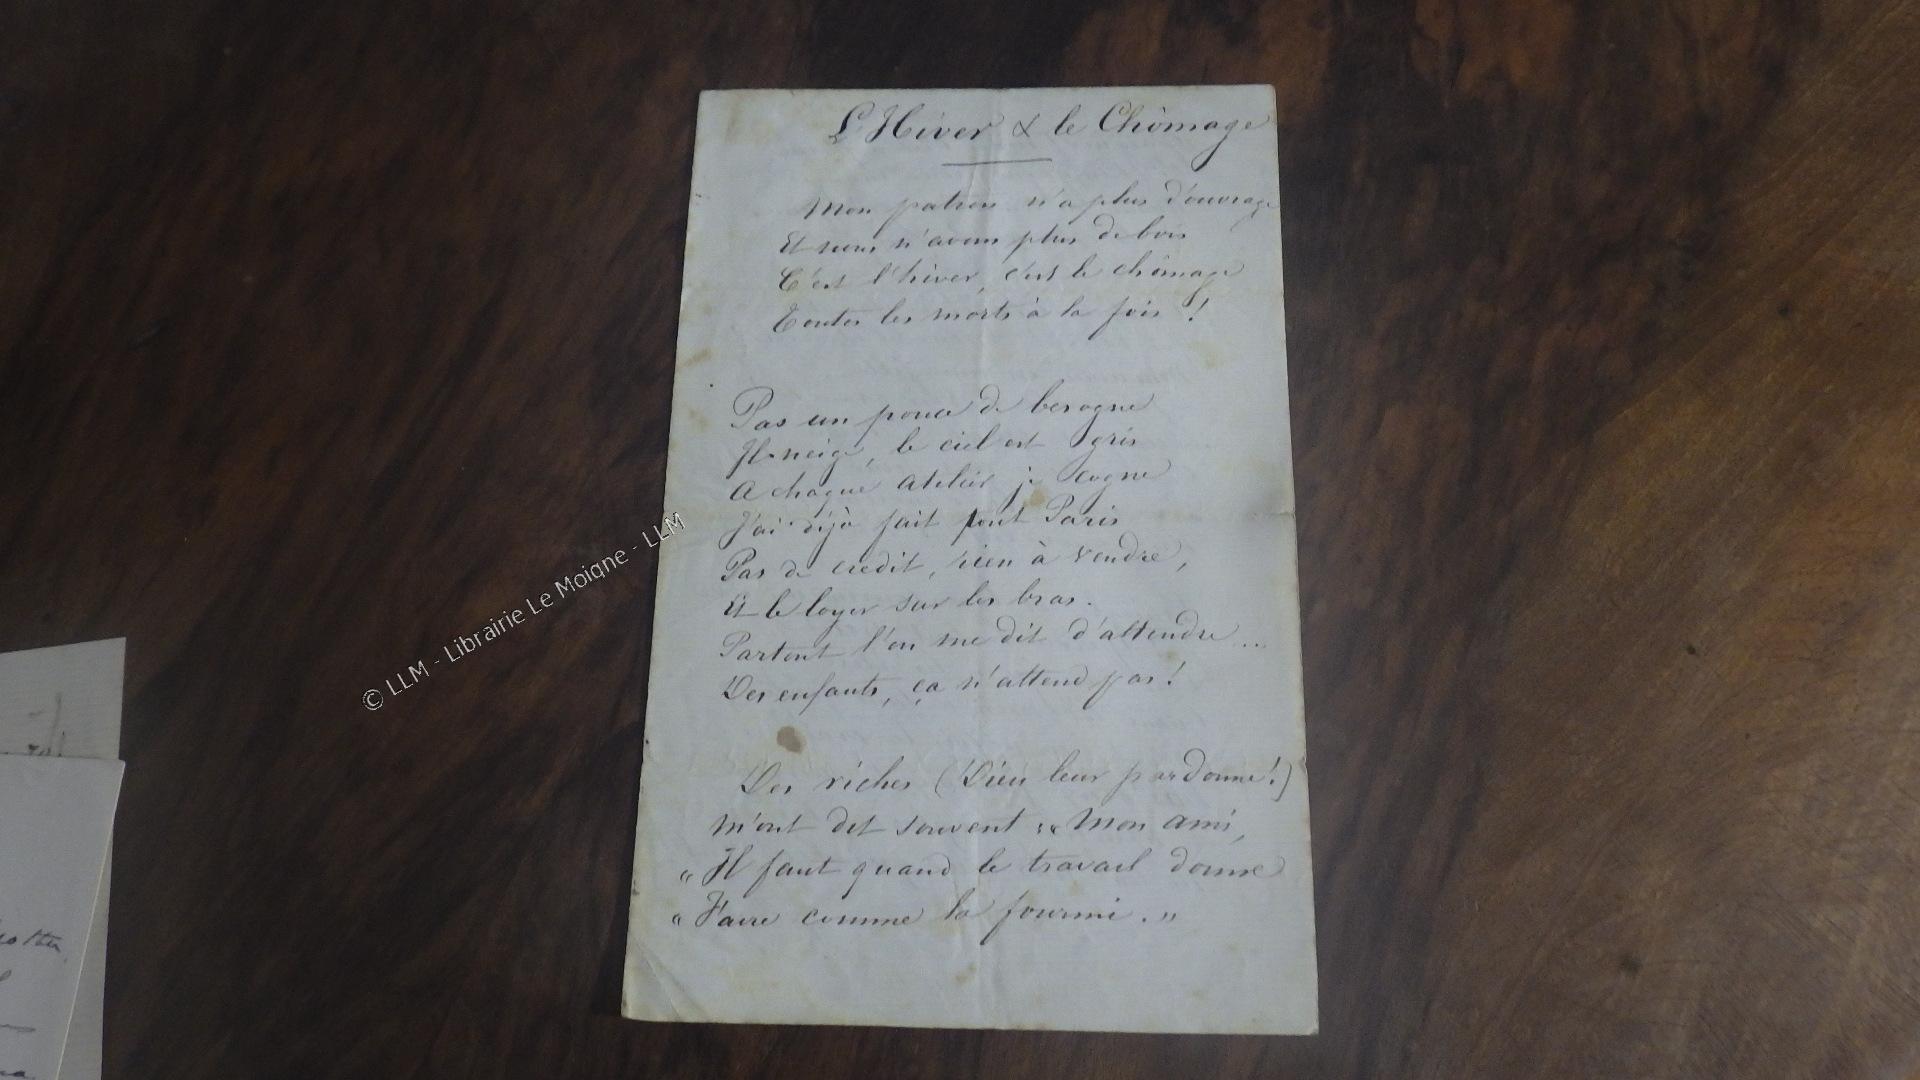 L'Hiver & le Chômage
Mon patron n'a plus d'ouvrage
Et nous n'avons plus de bois
C'est l'hiver, c'est le chômage
Toutes les morts à la fois !
Pas un pouce de besogne
Il neige, le ciel est gris
A chaque atelier je cogne
J'ai déjà fait tout Paris
Pas de crédit, rien à vendre,
Et le loyer sur les bras.
Partout l'on me dit d'attendre ...
Des enfants, ça n'attend pas !
Des riches (Dieu leur pardonne !)
M'ont dit souvent : « Mon ami,
« Il faut quand le travail donne
« Faire comme la fourmi. »
© LLM - Librairie Le Moigne - LLM